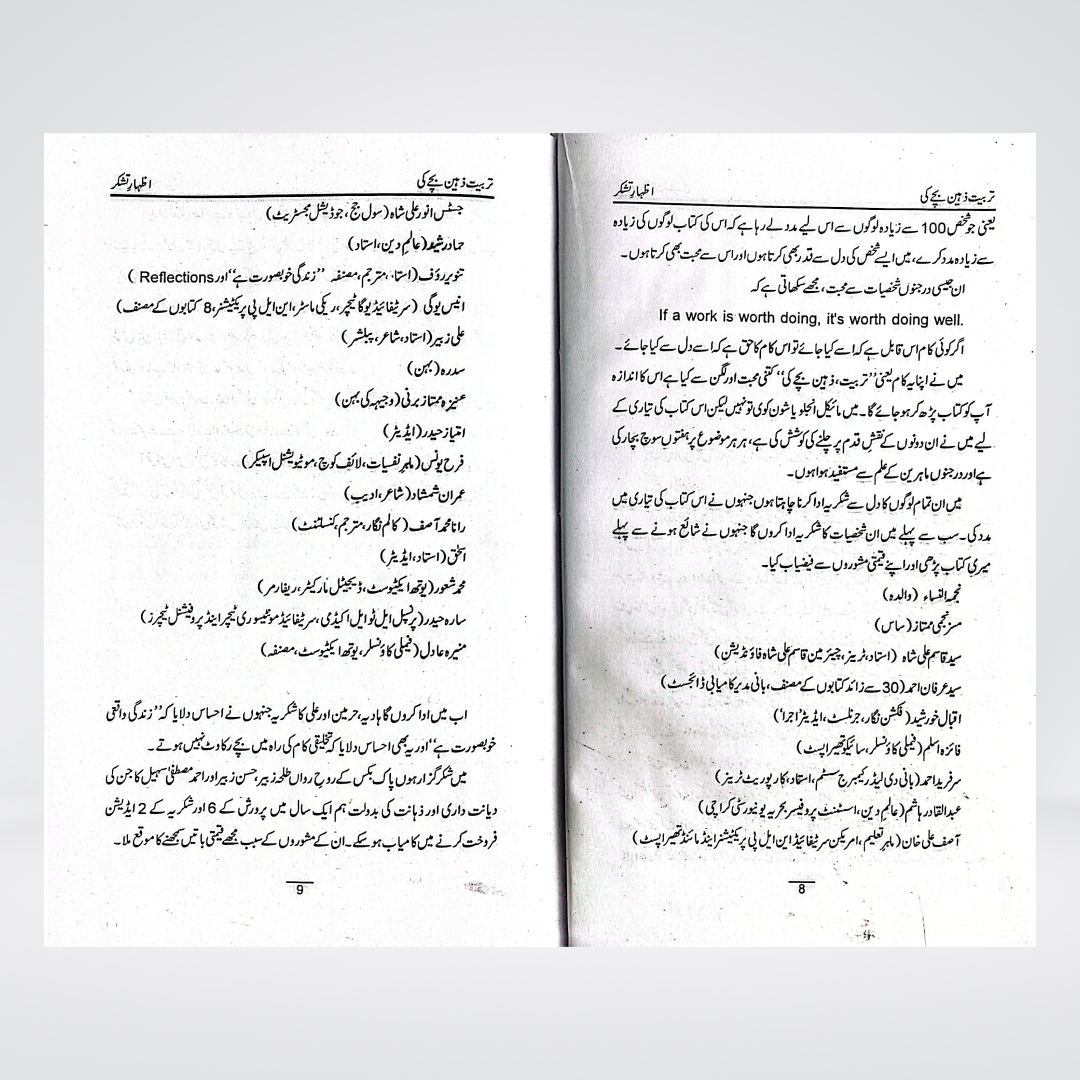 تربیت ذہین بچے کی
اظہارِ تشکر
یعنی جو شخص 100 سے زیادہ لوگوں سے اس لیے مدد لے رہا ہے کہ اس کی کتاب لوگوں کی زیادہ
سے زیادہ مدد کرے، میں ایسے شخص کی دل سے قدر بھی کرتا ہوں اور اس سے محبت بھی کرتا ہوں۔
ان جیسی درجنوں شخصیات سے محبت، مجھے سکھاتی ہے کہ
If a work is worth doing, it's worth doing well.
اگر کوئی کام اس قابل ہے کہ اسے کیا جائے تو اس کام کا حق ہے کہ اسے دل سے کیا جائے۔
میں نے اپنا یہ کام یعنی ’’تربیت، ذہین بچے کی‘‘ کتنی محبت اور لگن سے کیا ہے اس کا اندازہ
آپ کو کتاب پڑھ کر ہو جائے گا۔ میں مائیکل انجلو یا شون کوی تو نہیں لیکن اس کتاب کی تیاری کے
لیے میں نے ان دونوں کے نقشِ قدم پر چلنے کی کوشش کی ہے، ہر ہر موضوع پر ہفتوں سوچ بچار کی
ہے اور درجنوں ماہرین کے علم سے مستفید ہوا ہوں۔
میں ان تمام لوگوں کا دل سے شکریہ ادا کرنا چاہتا ہوں جنہوں نے اس کتاب کی تیاری میں
مدد کی۔ سب سے پہلے میں ان شخصیات کا شکریہ ادا کروں گا جنہوں نے شائع ہونے سے پہلے
میری کتاب پڑھی اور اپنے قیمتی مشوروں سے فیضیاب کیا۔
نجمۃ النساء (والدہ)
مسز نجمی ممتاز (ساس)
سید قاسم علی شاہ (استاد، ٹرینر، چیئر مین قاسم علی شاہ فاؤنڈیشن)
سید عرفان احمد (30 سے زائد کتابوں کے مصنف، بانی مدیر کامیابی ڈائجسٹ)
اقبال خورشید (فکشن نگار، جرنلسٹ، ایڈیٹر 'اجرا')
فائزہ اسلم (فیملی کاؤنسلر، سائیکو تھیراپسٹ)
سر فرید احمد (بانی دی لیڈر کیمبرج سسٹم، استاد، کارپوریٹ ٹرینر)
عبدالقادر ہاشم (عالمِ دین، اسسٹنٹ پروفیسر بحریہ یونیورسٹی کراچی)
آصف علی خان (ماہرِ تعلیم، امریکن سرٹیفائیڈ این ایل پی پریکٹیشنر اینڈ مائنڈ تھیراپسٹ)
8
تربیت ذہین بچے کی
اظہارِ تشکر
جسٹس انور علی شاہ (سول جج، جوڈیشل مجسٹریٹ)
حماد رشید (عالمِ دین، استاد)
تنویر رؤف (استاد، مترجم، مصنفہ ’’زندگی خوبصورت ہے‘‘ اور Reflections)
انیس یوگی (سرٹیفائیڈ یوگا ٹیچر، ریکی ماسٹر، این ایل پی پریکٹیشنر، 8 کتابوں کے مصنف)
علی زبیر (استاد، شاعر، پبلشر)
سدرہ (بہن)
عنیزہ ممتاز برنی (وجیہہ کی بہن)
امتیاز حیدر (ایڈیٹر)
فرح یونس (ماہرِ نفسیات، لائف کوچ، موٹیویشنل اسپیکر)
عمران شمشاد (شاعر، ادیب)
رانا محمد آصف (کالم نگار، مترجم، کنسلٹنٹ)
اسحٰق (استاد، ایڈیٹر)
محمد شعور (یوتھ ایکٹیوسٹ، ڈیجیٹل مارکیٹر، ریفارمر)
سارہ حیدر (پرنسپل ایل ٹو ایل اکیڈمی، سرٹیفائیڈ مونٹیسوری ٹیچر اینڈ پروفیشنل ٹیچرز)
منیرہ عادل (فیملی کاؤنسلر، یوتھ ایکٹیوسٹ، مصنفہ)
اب میں ادا کروں گا بادیہ، حرمین اور علی کا شکریہ جنہوں نے احساس دلایا کہ ’’زندگی واقعی
خوبصورت ہے‘‘ اور یہ بھی احساس دلایا کہ تخلیقی کام کی راہ میں بچے رکاوٹ نہیں ہوتے۔
میں شکر گزار ہوں پاک بکس کے روحِ رواں طلحہ زبیر، حسن زبیر اور احمد مصطفیٰ سہیل کا جن کی
دیانت داری اور ذہانت کی بدولت ہم ایک سال میں پرورش کے 6 اور شکریہ کے 2 ایڈیشن
فروخت کرنے میں کامیاب ہو سکے۔ ان کے مشوروں کے سبب مجھے قیمتی باتیں سمجھنے کا موقع ملا۔
9